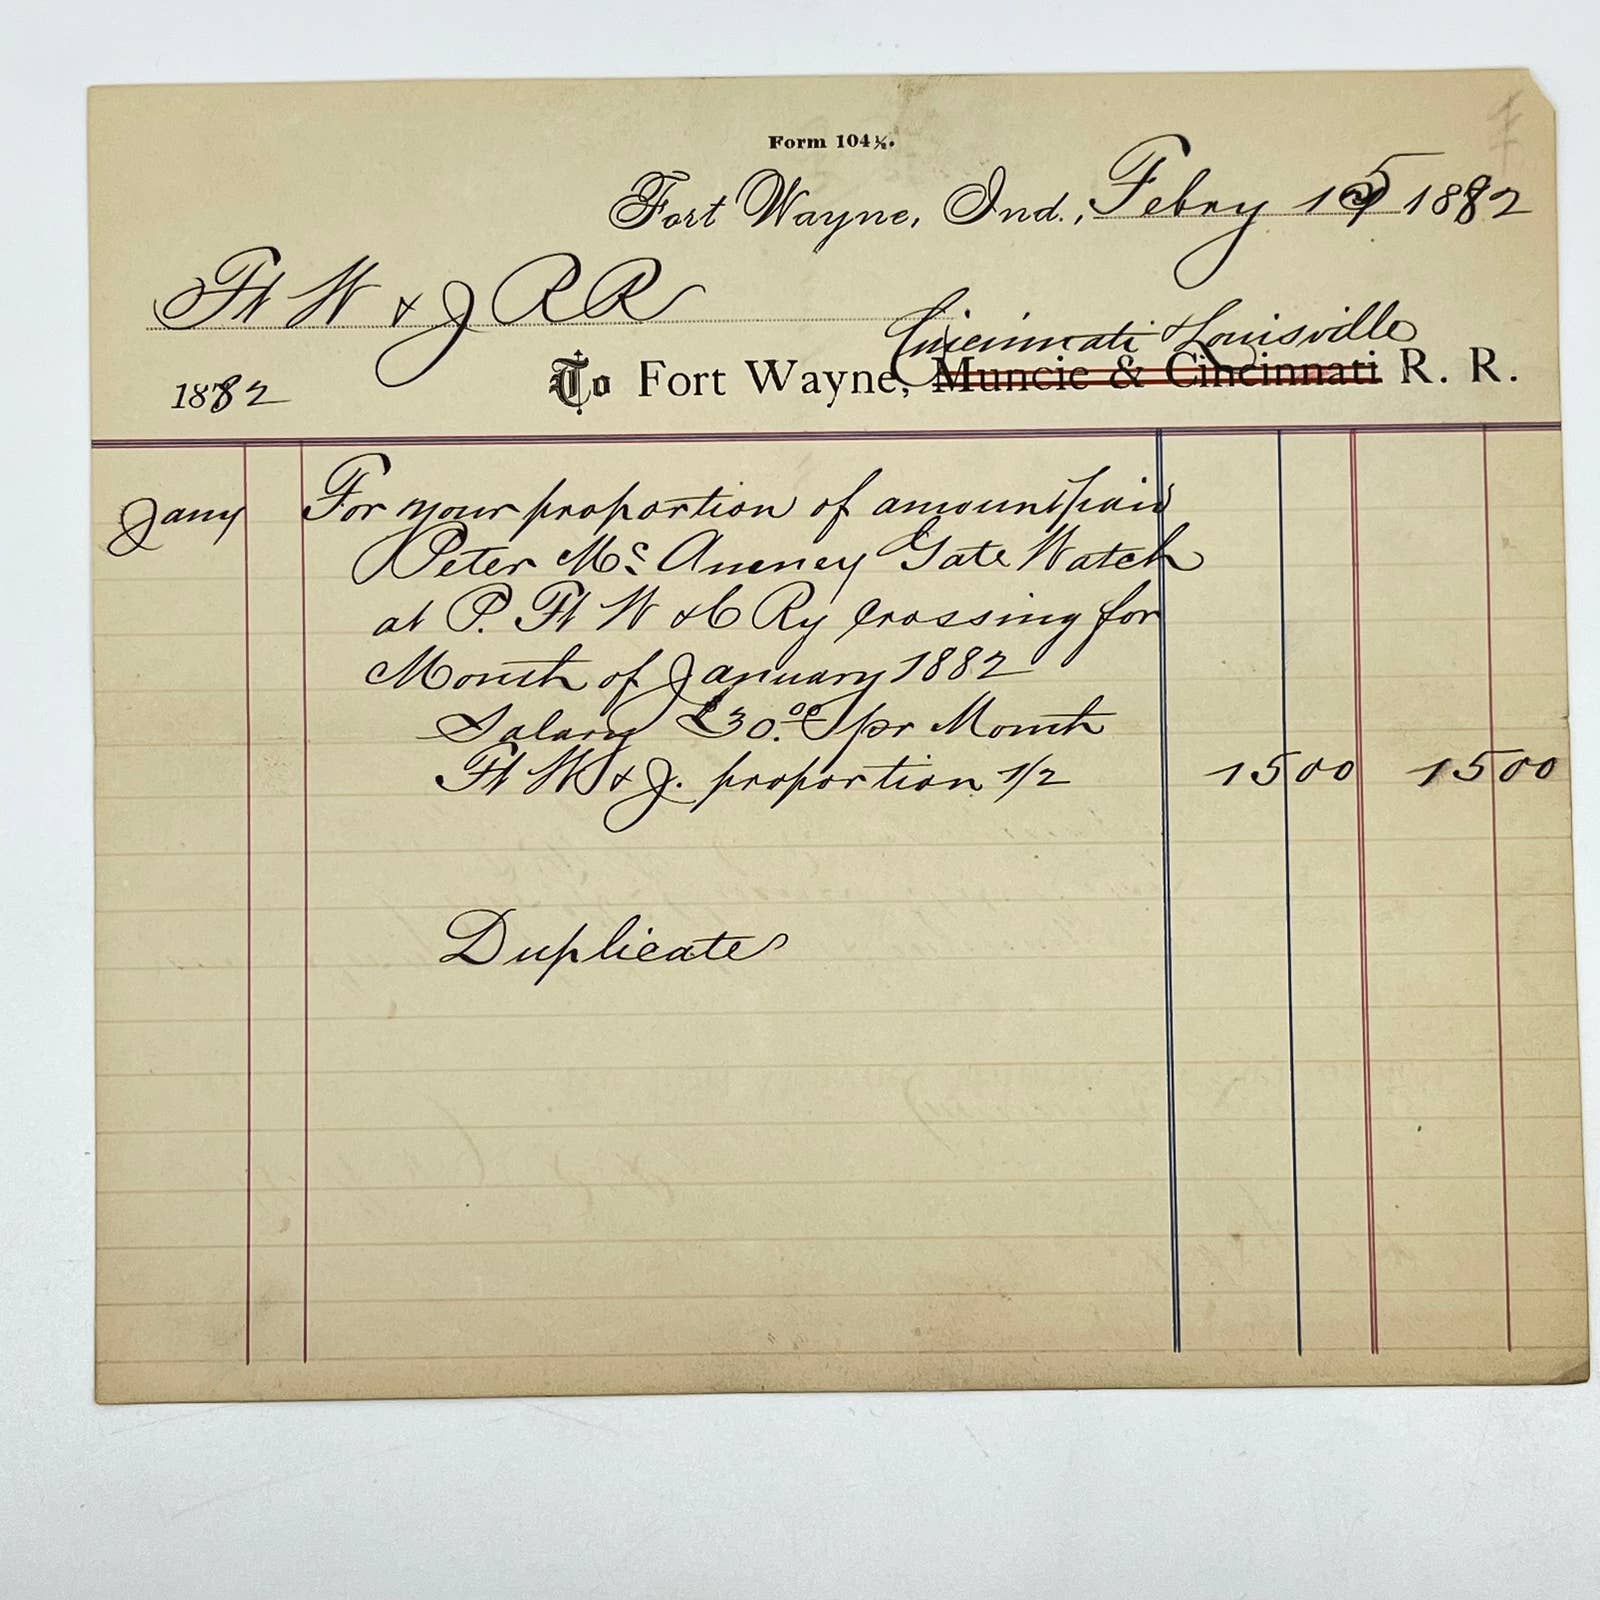 Form 104½.
Fort Wayne, Ind., Febry 15 1882
Ft W & J RR
Cincinnati & Louisville
To Fort Wayne, Muncie & Cincinnati R. R.
1882
Jany For your proportion of amount paid
Peter Mc Aneney Gate Watch
at P. Ft W & C Ry Crossing for
Month of January 1882
Salary $30.00 pr Month
Ft W & J. proportion 1/2 15 00 15 00
Duplicate